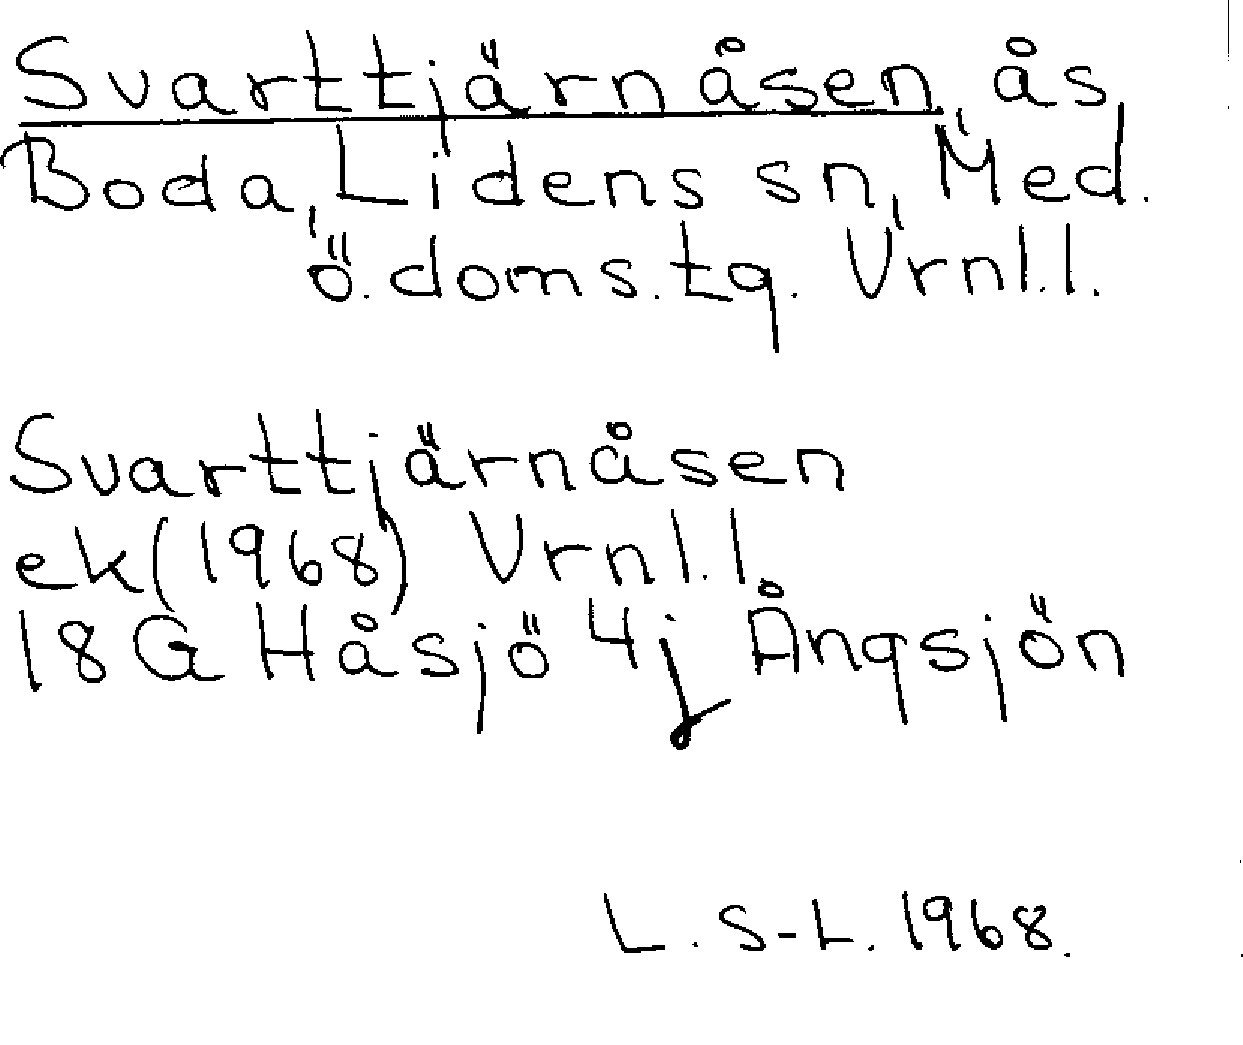 Svarttjärnåsen, ås,
Boda, Lidens sn, Med.
ö. doms.tg. Vrnl.l.
Svarttjärnåsen
ek(1968) Vrnl.l.
18G Håsjö 4j Ångsjön
L. S-L. 1968.